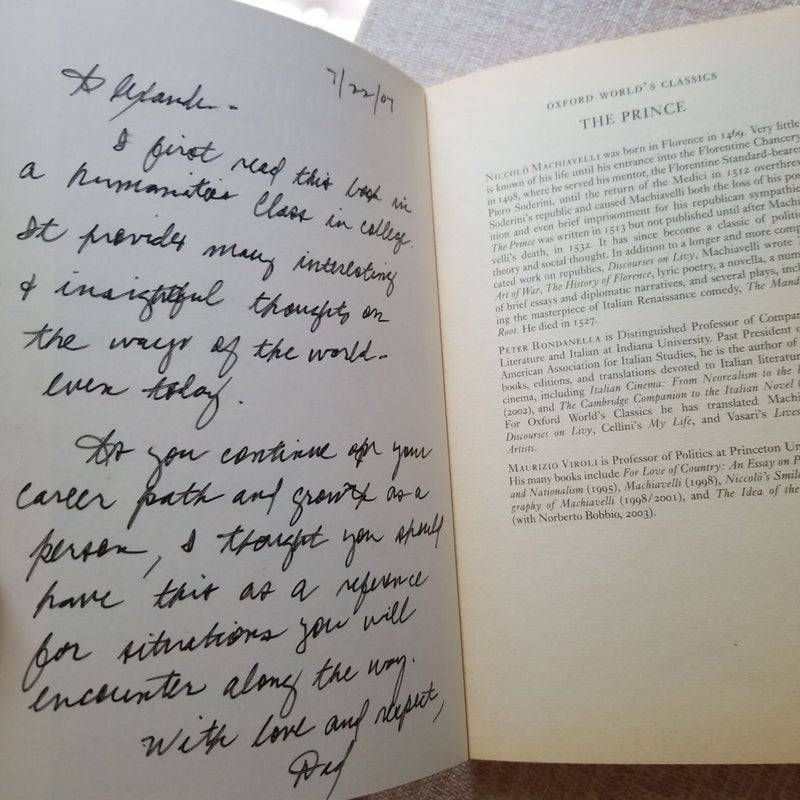 7/22/07
Alexander -
I first read this book in
a humanities class in college.
It provides many interesting
& insightful thoughts on
the ways of the world -
even today.
As you continue on your
career path and growth as a
person, I thought you should
have this as a reference
for situations you will
encounter along the way.
With love and respect,
Dad
OXFORD WORLD'S CLASSICS
THE PRINCE
NICCOLÒ MACHIAVELLI was born in Florence in 1469. Very little
is known of his life until his entrance into the Florentine Chancery
in 1498, where he served his mentor, the Florentine Standard-bearer
Piero Soderini, until the return of the Medici in 1512 overthrew
Soderini's republic and caused Machiavelli both the loss of his pos
ition and even brief imprisonment for his republican sympathie
The Prince was written in 1513 but not published until after Machi
velli's death, in 1532. It has since become a classic of politi
theory and social thought. In addition to a longer and more comp
cated work on republics, Discourses on Livy, Machiavelli wrote
Art of War, The History of Florence, lyric poetry, a novella, a num
of brief essays and diplomatic narratives, and several plays, inclu
ing the masterpiece of Italian Renaissance comedy, The Mand
Root. He died in 1527.
PETER BONDANELLA is Distinguished Professor of Compar
Literature and Italian at Indiana University. Past President o
American Association for Italian Studies, he is the author of
books, editions, and translations devoted to Italian literatur
cinema, including Italian Cinema: From Neorealism to the
(2002), and The Cambridge Companion to the Italian Novel
For Oxford World's Classics he has translated Machi
Discourses on Livy, Cellini's My Life, and Vasari's Lives
Artists.
MAURIZIO VIROLI is Professor of Politics at Princeton Un
His many books include For Love of Country: An Essay on P
and Nationalism (1995), Machiavelli (1998), Niccolò's Smile
graphy of Machiavelli (1998/2001), and The Idea of the
(with Norberto Bobbio, 2003).